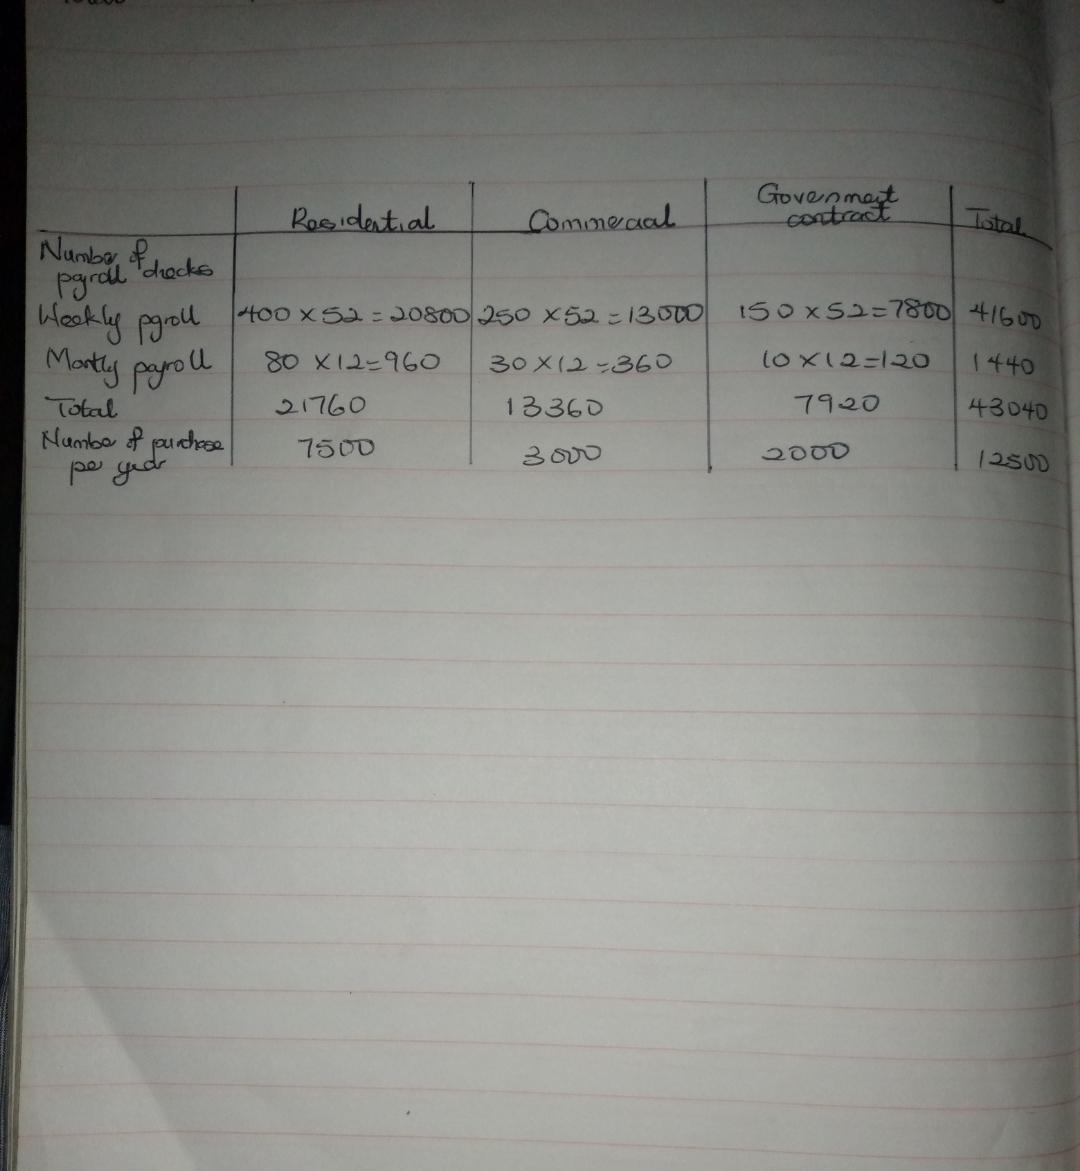 Residential Commercial Government contract Total
Number of payroll checks
Weekly payroll 400 x 52 = 20800 250 x 52 = 13000 150 x 52 = 7800 41600
Montly payroll 80 x 12 = 960 30 x 12 = 360 10 x 12 = 120 1440
Total 21760 13360 7920 43040
Number of purchase per year 7500 3000 2000 12500